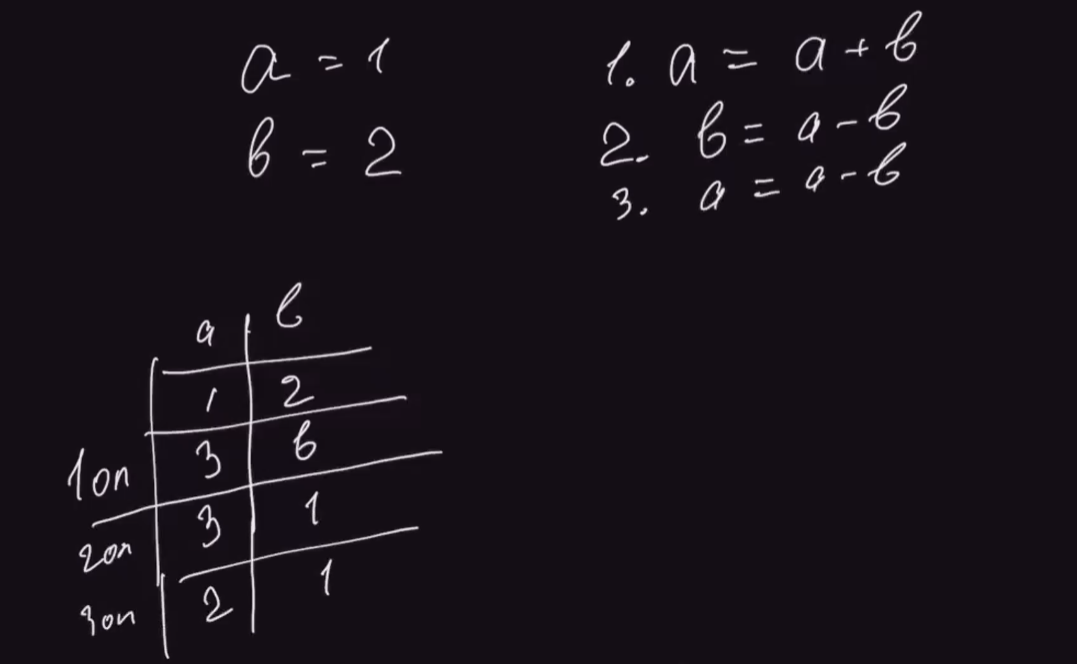 a = 1
b = 2
1. a = a + b
2. b = a - b
3. a = a - b
a b
1 2
1оп 3 b
2оп 3 1
3оп 2 1